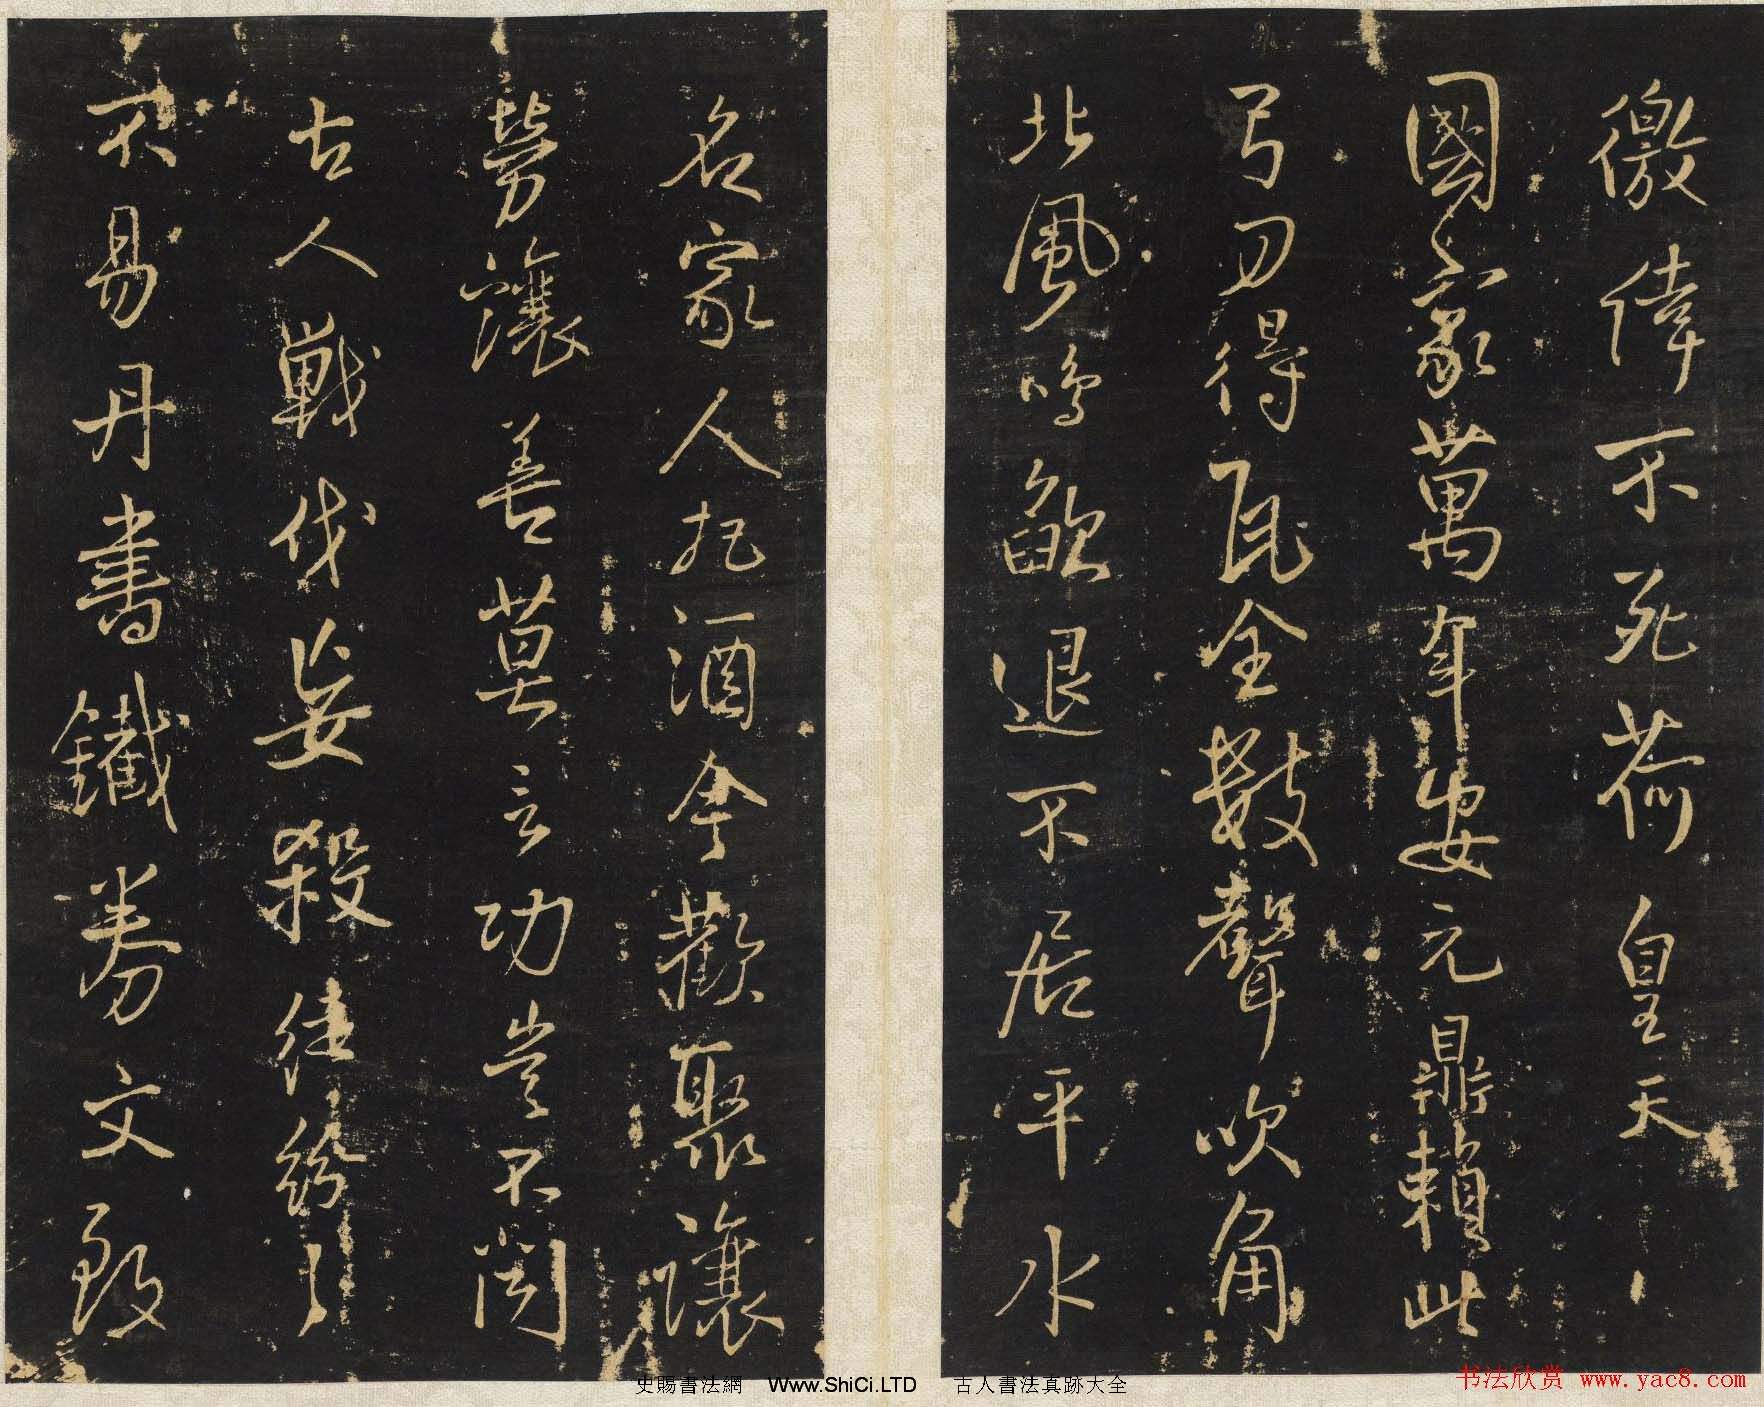 儌倖不死荷皇天
國家萬年安元鼎賴此
弓刀得瓦全數聲吹角
北風鳴欿退不居平水
名家人把酒今歡聚讓
勞讓善莫言功豈不聞
古人戰伐妄殺徒紛〻
不易丹書鐵券文
史賜書法網 Www.ShiCi.LTD 古人書法真跡大全
书法欣赏 www.yac8.com